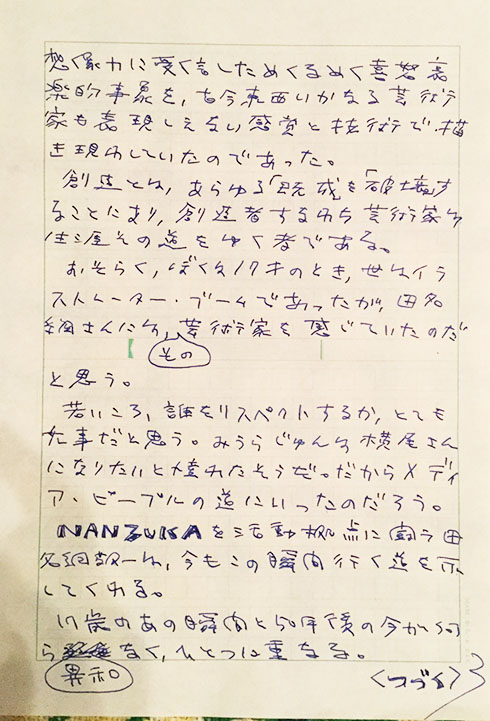 想像力に したためくるめく喜怒哀
楽的事象を、古今東西いかなる芸術
家も表現しえない感覚と技術で描
き現わしていたのであった。
創造とは、あらゆる「既成」を「破壊す
ることにあり、創造者すなわち芸術家は
生涯その道をゆく者である。
おそらく、ぼく17才のとき、世はイラ
ストレーター・ブームであったが、田名
網さんには、芸術家を感じていたのだ
その
と思う。
若いころ、誰をリスペクトするか、とても
大事だと思う。みうらじゅんは横尾さん
になりたいと憧れたそうだ。だからメディ
ア・ピープルの道にいったのだろう。
NANZUKAを活動拠点に闘う田
名網敬一は、今もこの瞬間行く道を示
してくれる。
17歳のあの瞬間と50年後の今が何
ら なく、ひとつに重なる。
異和
<つづく>